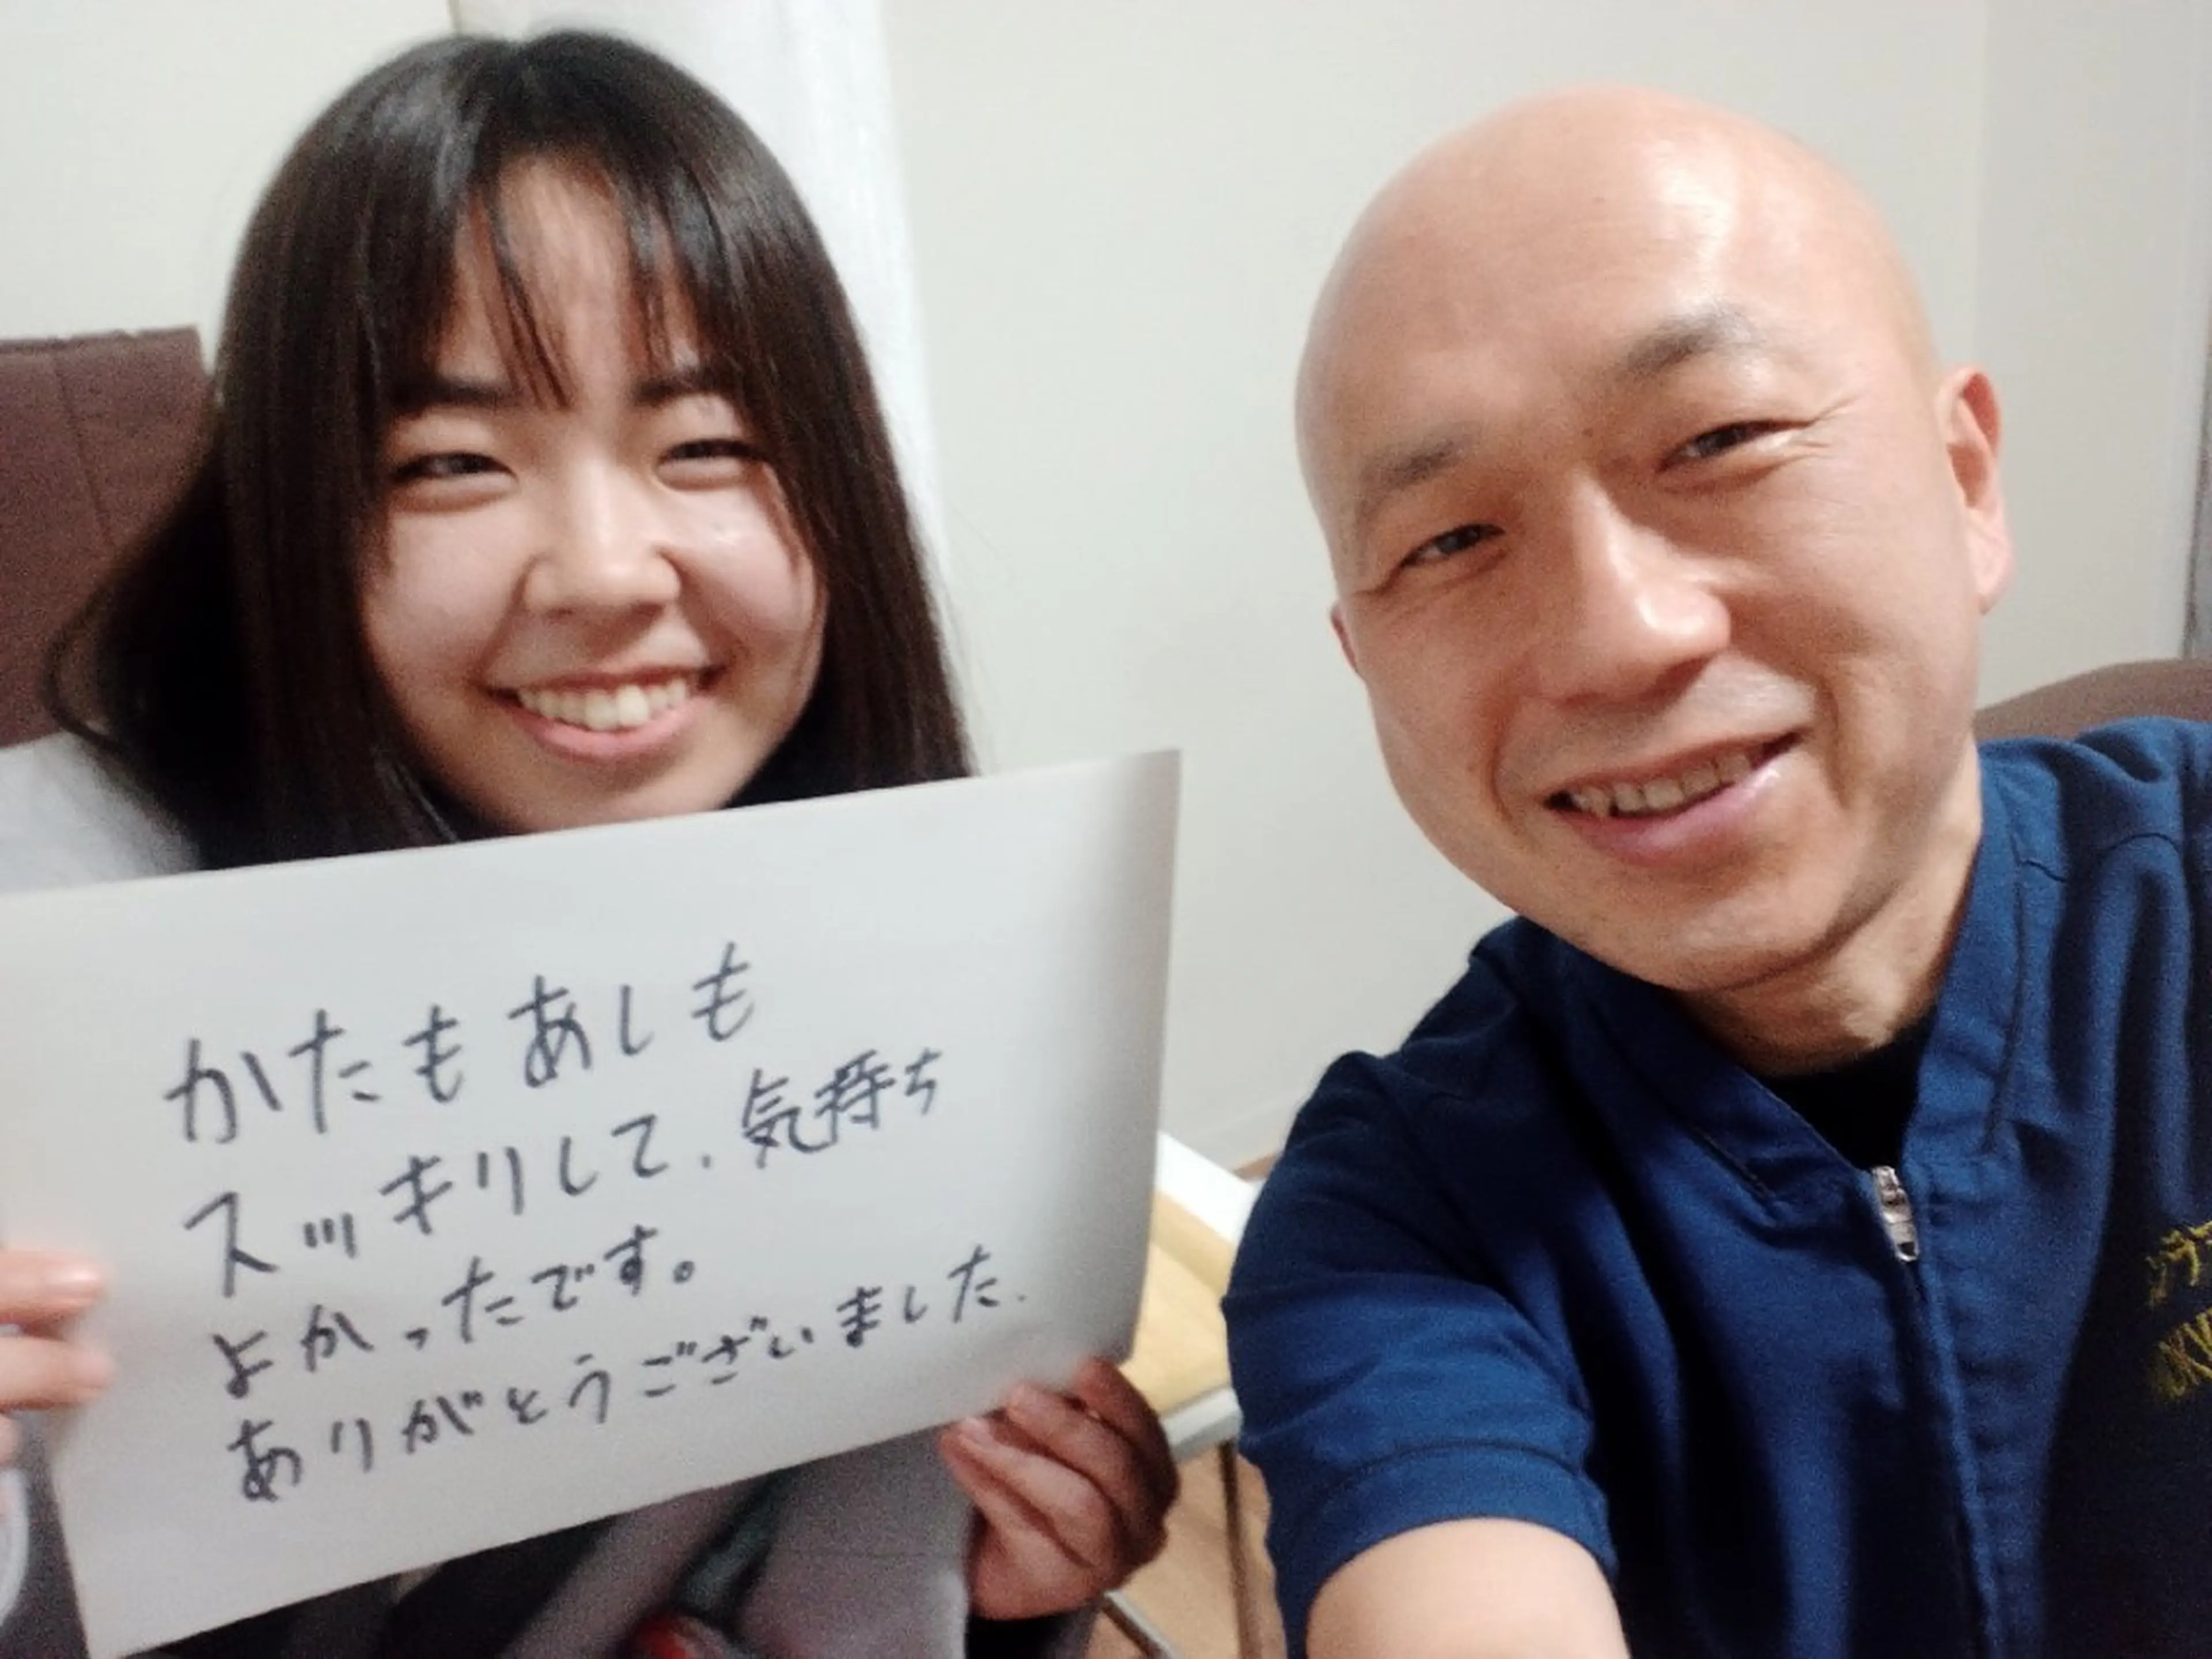 かたもあしも
スッキリして、気持ち
よかったです。
ありがとうございました.